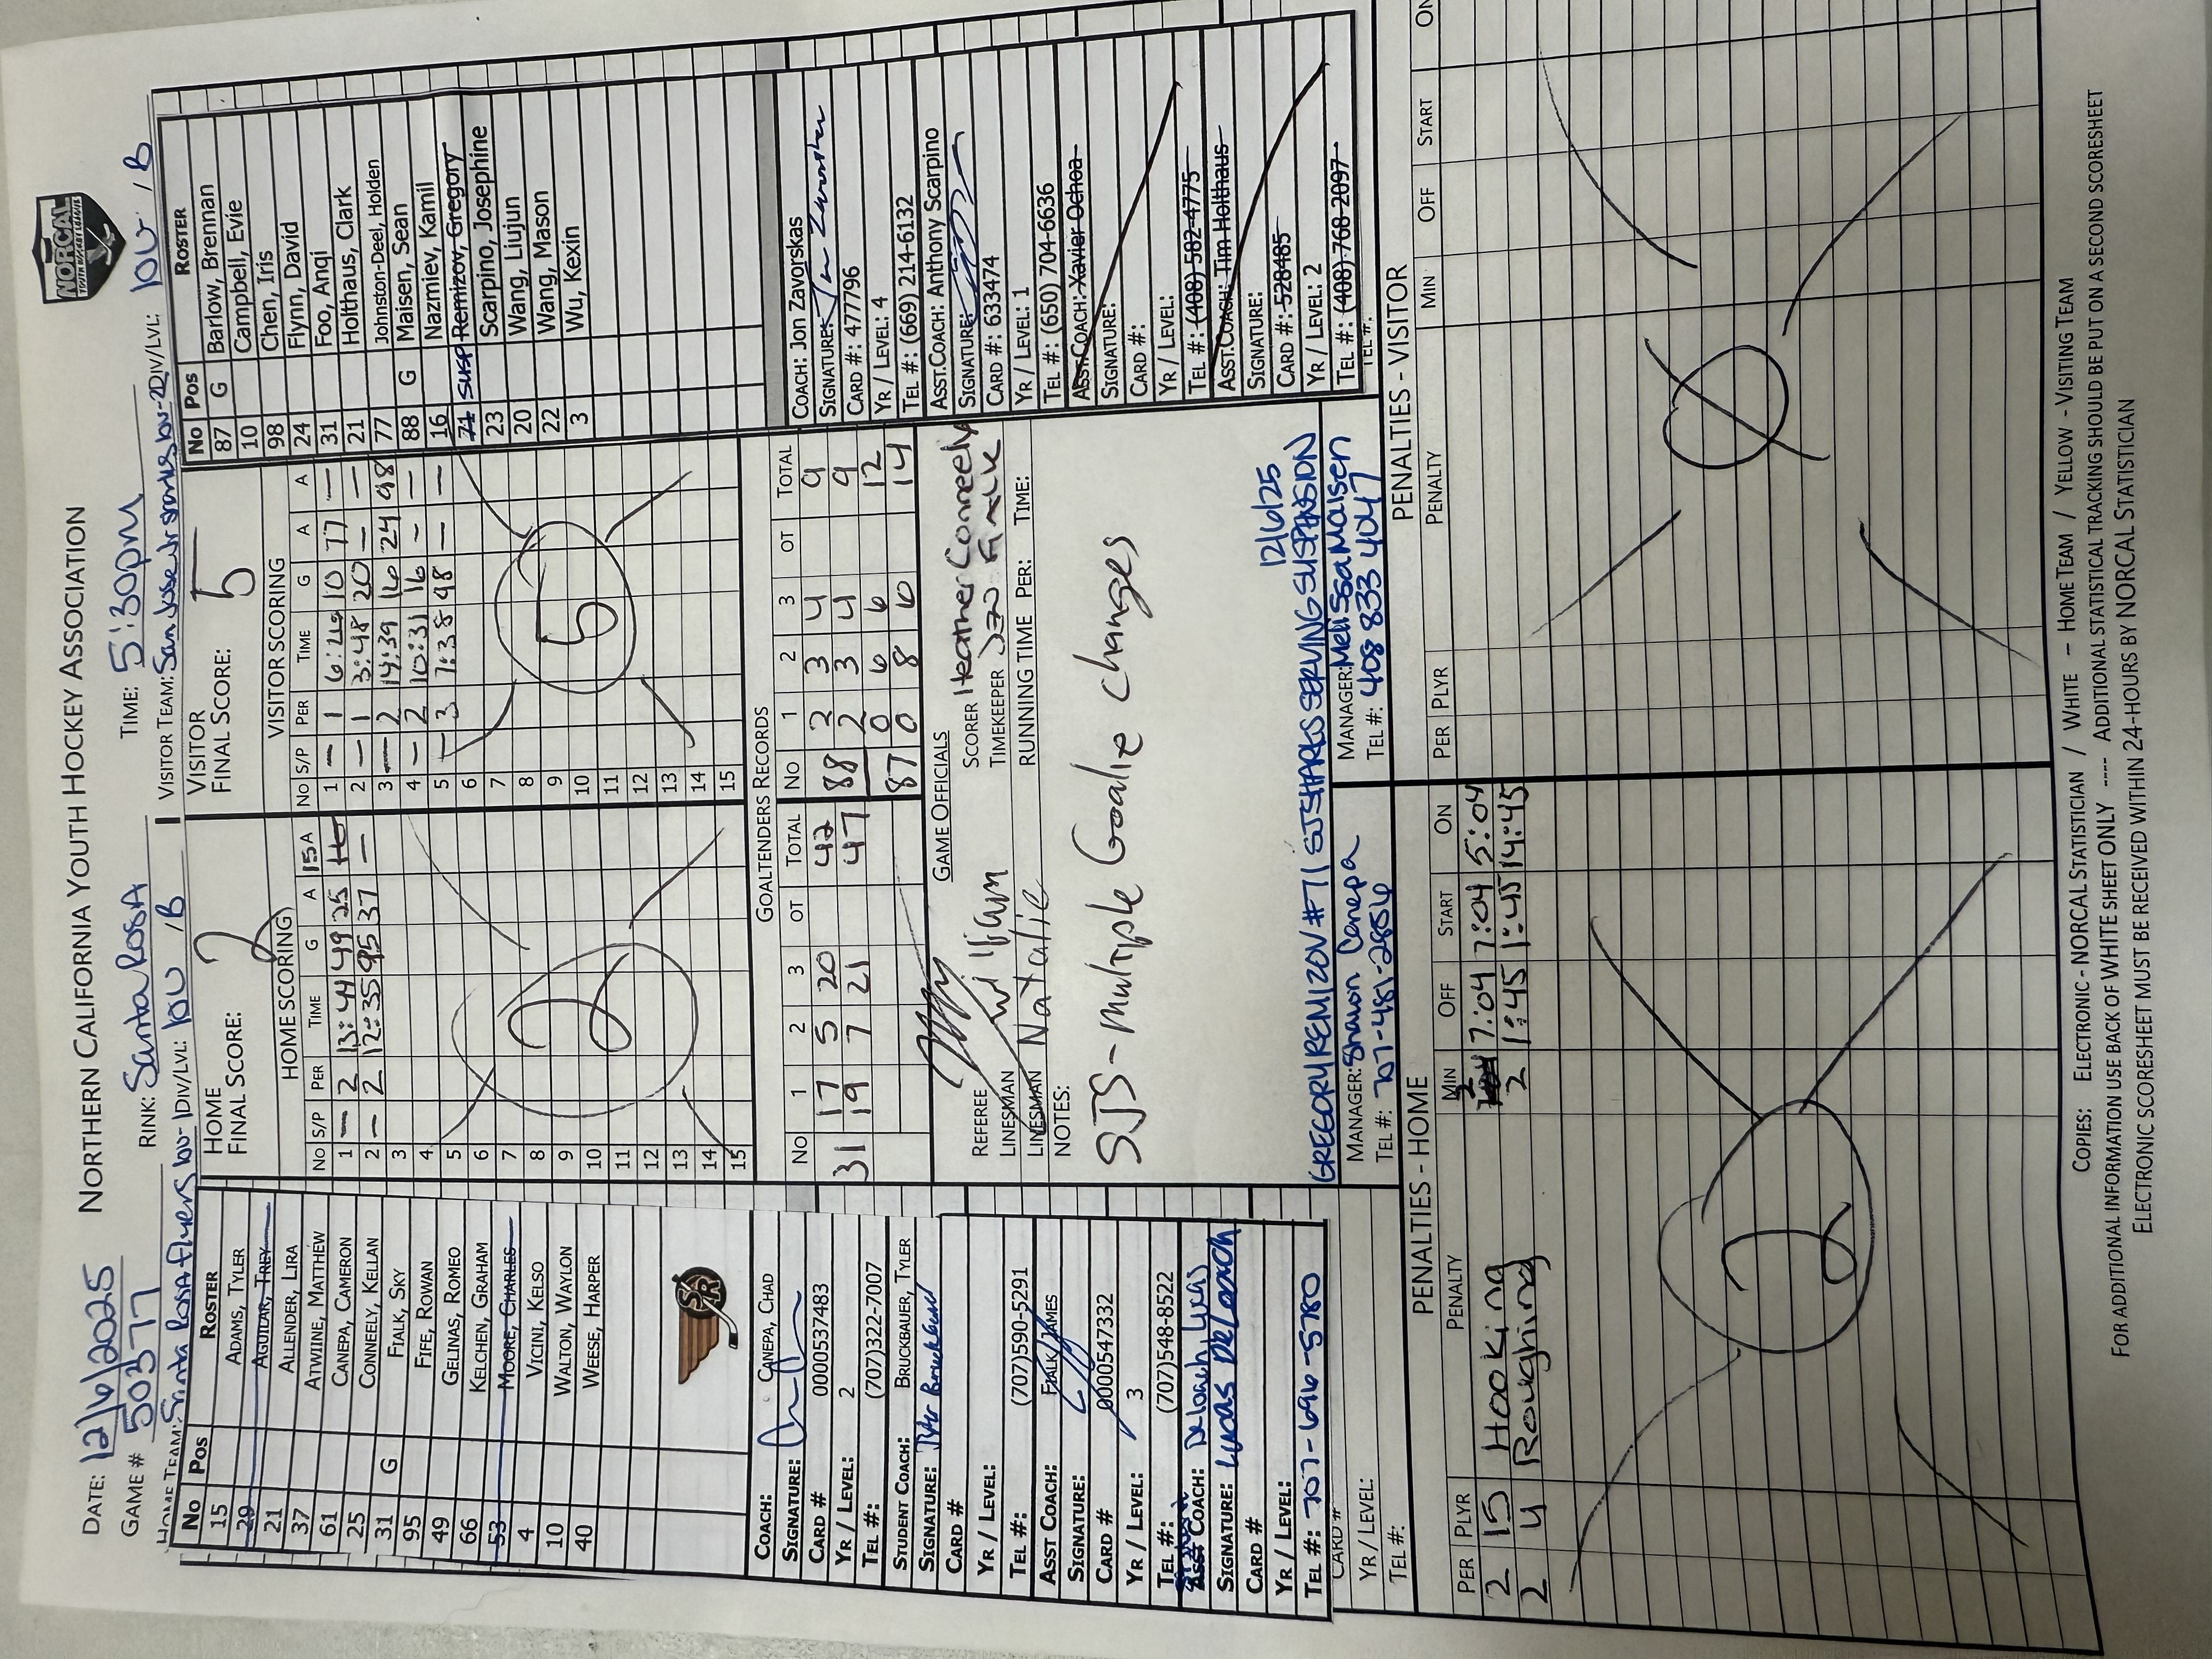 NORTHERN CALIFORNIA YOUTH HOCKEY ASSOCIATION
NORCAL
YOUTH HOCKEY LEAGUE
DATE: 12/6/2025
GAME # 50377
RINK: Santa Rosa
TIME: 5:30pm
HOME TEAM: Santa Rosa Flyers 10U-1 DIV/LVL: 10U / B
VISITOR TEAM: San Jose Jr Sharks 10U-2 DIV/LVL: 10U / B
No Pos ROSTER
15 ADAMS, TYLER
29 AGUILAR, TREY
21 ALLENDER, LIRA
37 ATWINE, MATTHEW
61 CANEPA, CAMERON
25 CONNEELY, KELLAN
31 G FIALK, SKY
95 FIFE, ROWAN
49 GELINAS, ROMEO
66 KELCHEN, GRAHAM
53 MOORE, CHARLES
4 VICINI, KELSO
10 WALTON, WAYLON
40 WEESE, HARPER
SR
COACH: CANEPA, CHAD
SIGNATURE:
CARD # 0000537483
YR / LEVEL: 2
TEL #: (707)322-7007
STUDENT COACH: BRUCKBAUER, TYLER
SIGNATURE: Tyler Bruckbauer
CARD #
YR / LEVEL:
TEL #: (707)590-5291
ASST COACH: FIALK, JAMES
SIGNATURE:
CARD # 0000547332
YR / LEVEL: 3
TEL #: (707)548-8522
ASST COACH: Deloach Lucas
SIGNATURE: Lucas Deloach
CARD #
YR / LEVEL:
TEL #: 707-696-5780
CARD #
YR / LEVEL:
TEL #:
HOME
FINAL SCORE: 2
HOME SCORING
No S/P PER TIME G A 15 A
1 — 2 13:44 49 25
2 — 2 12:35 95 37 —
3
4
5
6
7
8
9
10
11
12
13
14
15
2
VISITOR
FINAL SCORE: 5
VISITOR SCORING
No S/P PER TIME G A A
1 — 1 6:29 10 77 —
2 — 1 3:48 20 — —
3 — 2 14:39 16 24 98
4 — 2 10:31 16 — —
5 — 3 7:38 98 — —
6
7
8
9
10
11
12
13
14
15
5
GOALTENDERS RECORDS
No 1 2 3 OT TOTAL
31 17 5 20 42
19 7 21 47
No 1 2 3 OT TOTAL
88 2 3 4 9
2 3 4 9
87 0 6 6 12
0 8 6 14
GAME OFFICIALS
REFEREE
LINESMAN William
LINESMAN Natalie
SCORER Heather Conneely
TIMEKEEPER
RUNNING TIME PER: TIME:
NOTES:
SJS - Multiple Goalie Changes
12/6/25
GREGORY REMIZOV #71 SJ SHARKS SERVING SUSPENSION
MANAGER: Shawn Canepa
TEL #: 707-481-2856
MANAGER: Melissa Maisen
TEL #: 408 833 4047
No Pos ROSTER
87 G Barlow, Brennan
10 Campbell, Evie
98 Chen, Iris
24 Flynn, David
31 Foo, Anqi
21 Holthaus, Clark
77 Johnston-Deel, Holden
88 G Maisen, Sean
16 Nazmiev, Kamil
71 SUSP Remizov, Gregory
23 Scarpino, Josephine
20 Wang, Liujun
22 Wang, Mason
3 Wu, Kexin
COACH: Jon Zavorskas
SIGNATURE: Jon Zavorskas
CARD #: 477796
YR / LEVEL: 4
TEL #: (669) 214-6132
ASST.COACH: Anthony Scarpino
SIGNATURE:
CARD #: 633474
YR / LEVEL: 1
TEL #: (650) 704-6636
ASST.COACH: Xavier Ochoa
SIGNATURE:
CARD #:
YR / LEVEL:
TEL #: (408) 582-4775
ASST.COACH: Tim Holthaus
SIGNATURE:
CARD #: 528485
YR / LEVEL: 2
TEL #: (408) 768-2097
TEL #:
PENALTIES - HOME
PER PLYR PENALTY MIN OFF START ON
2 15 Hooking 2 7:04 7:04 5:04
2 4 Roughing 2 1:45 1:45 14:45
2
PENALTIES - VISITOR
PER PLYR PENALTY MIN OFF START ON
COPIES: ELECTRONIC - NORCAL STATISTICIAN / WHITE – HOME TEAM / YELLOW - VISITING TEAM
FOR ADDITIONAL INFORMATION USE BACK OF WHITE SHEET ONLY ---- ADDITIONAL STATISTICAL TRACKING SHOULD BE PUT ON A SECOND SCORESHEET
ELECTRONIC SCORESHEET MUST BE RECEIVED WITHIN 24-HOURS BY NORCAL STATISTICIAN